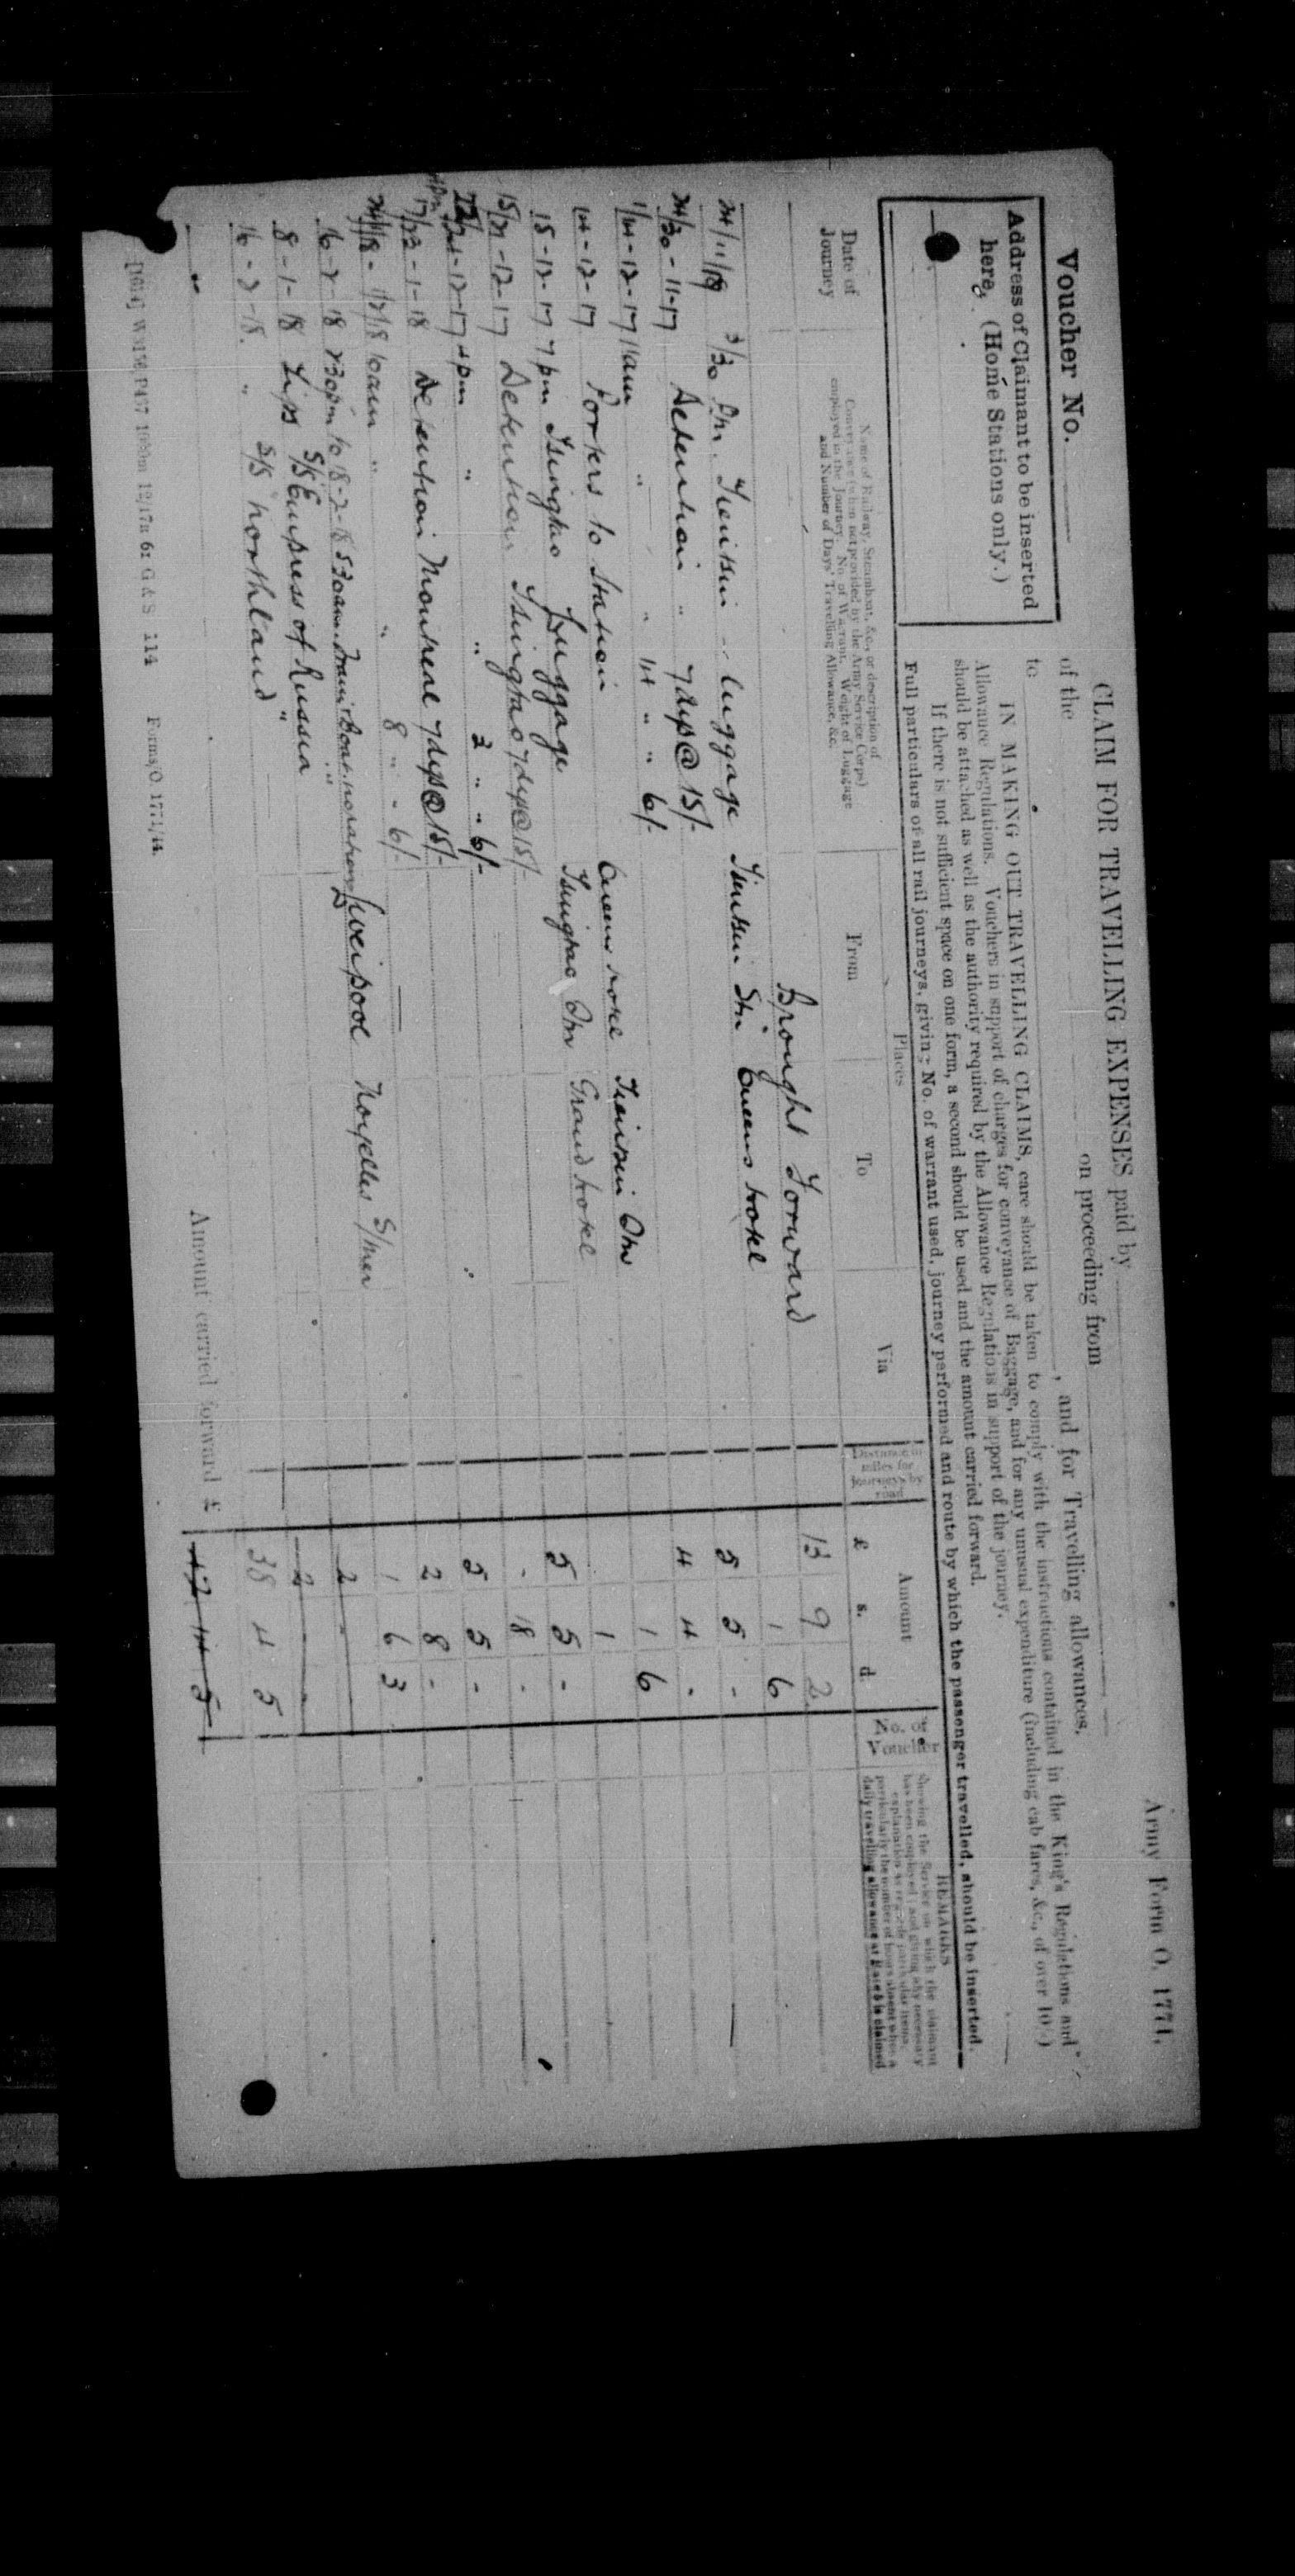 Army Form O. 1771.
Voucher No.
CLAIM FOR TRAVELLING EXPENSES paid by
of the on proceeding from
to , and for Travelling allowances.
Address of Claimant to be inserted
here. (Home Stations only.)
IN MAKING OUT TRAVELLING CLAIMS, care should be taken to comply with the instructions contained in the King's Regulations and
Allowance Regulations. Vouchers in support of charges for conveyance of Baggage, and for any unusual expenditure (including cab fares, &c., of over 10/-)
should be attached as well as the authority required by the Allowance Regulations in support of the journey.
If there is not sufficient space on one form, a second should be used and the amount carried forward.
Full particulars of all rail journeys, giving No. of warrant used, journey performed and route by which the passenger travelled, should be inserted.
Date of
Journey
Name of Railway, Steamboat, &c., or description of
Conveyance (when not provided by the Army Service Corps)
employed in the Journey. No. of Warrant. Weight of Luggage
and Number of Days' Travelling Allowance, &c.
Places
From
To
Via
Distance in
miles for
journeys by
road
Amount
£ s. d.
No. of
Voucher
REMARKS
Showing the Service on which the claimant
has been employed; and giving any necessary
explanation as regards particular items,
particularly the number of hours absent when a
daily travelling allowance at Rate b is claimed
Brought Forward 13 9 2
3/30 Pm. Tientsin luggage Tientsin Stn Queens hotel 1 6
24/30-11-17 Detention " 7 days @ 15/- 5 5 -
1/14-12-17 11am " " 14 " " 6/- 4 4 -
14-12-17 Porters to Station Queens hotel Tientsin Stn 1 6
15-12-17 7pm Tsingtao Luggage Tsingtao Stn Grand hotel 1
15/21-12-17 Detention Tsingtao 7 days @ 15/- 5 5 -
22/24-12-17 4pm " " 3 " " 6/- - 18 -
17/23-1-18 Detention Montreal 7 days @ 15/- 5 5 -
10am " " 8 " - 6/- 2 8 -
16-2-18 230pm to 18-2-18 530am Train & Boat no rations Liverpool Noyelles S/mer 1 6 3
8-1-18 Tips S/S Empress of Russia " 2 -
16-2-18. " S/S Northland " 2 -
38 4 5
Amount carried forward £
Forms/O. 1771/14.